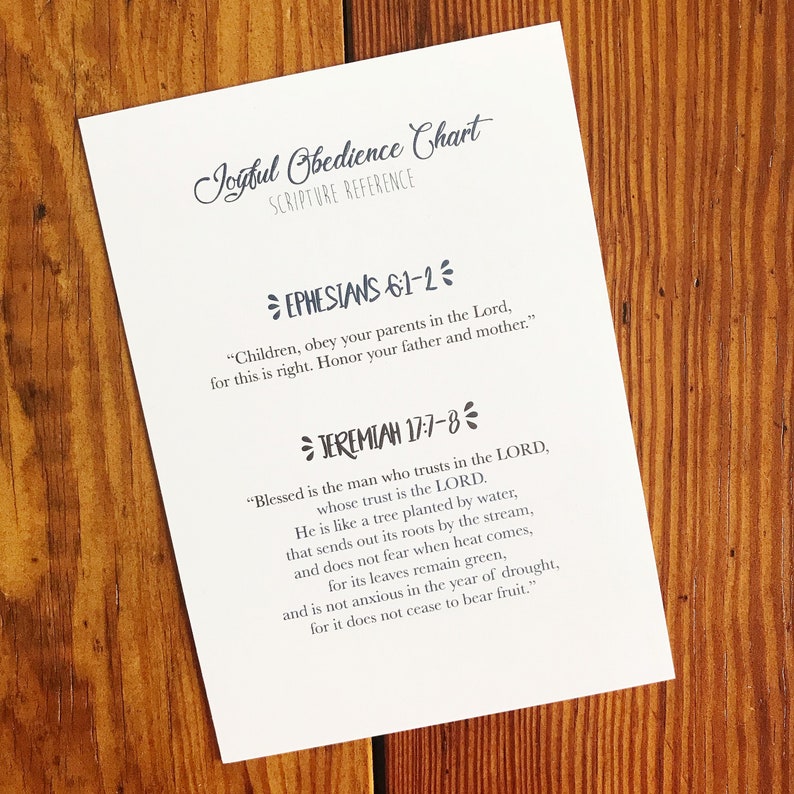 Joyful Obedience Chart
SCRIPTURE REFERENCE
EPHESIANS 6:1-2
“Children, obey your parents in the Lord,
for this is right. Honor your father and mother.”
JEREMIAH 17:7-8
“Blessed is the man who trusts in the LORD,
whose trust is the LORD.
He is like a tree planted by water,
that sends out its roots by the stream,
and does not fear when heat comes,
for its leaves remain green,
and is not anxious in the year of drought,
for it does not cease to bear fruit.”